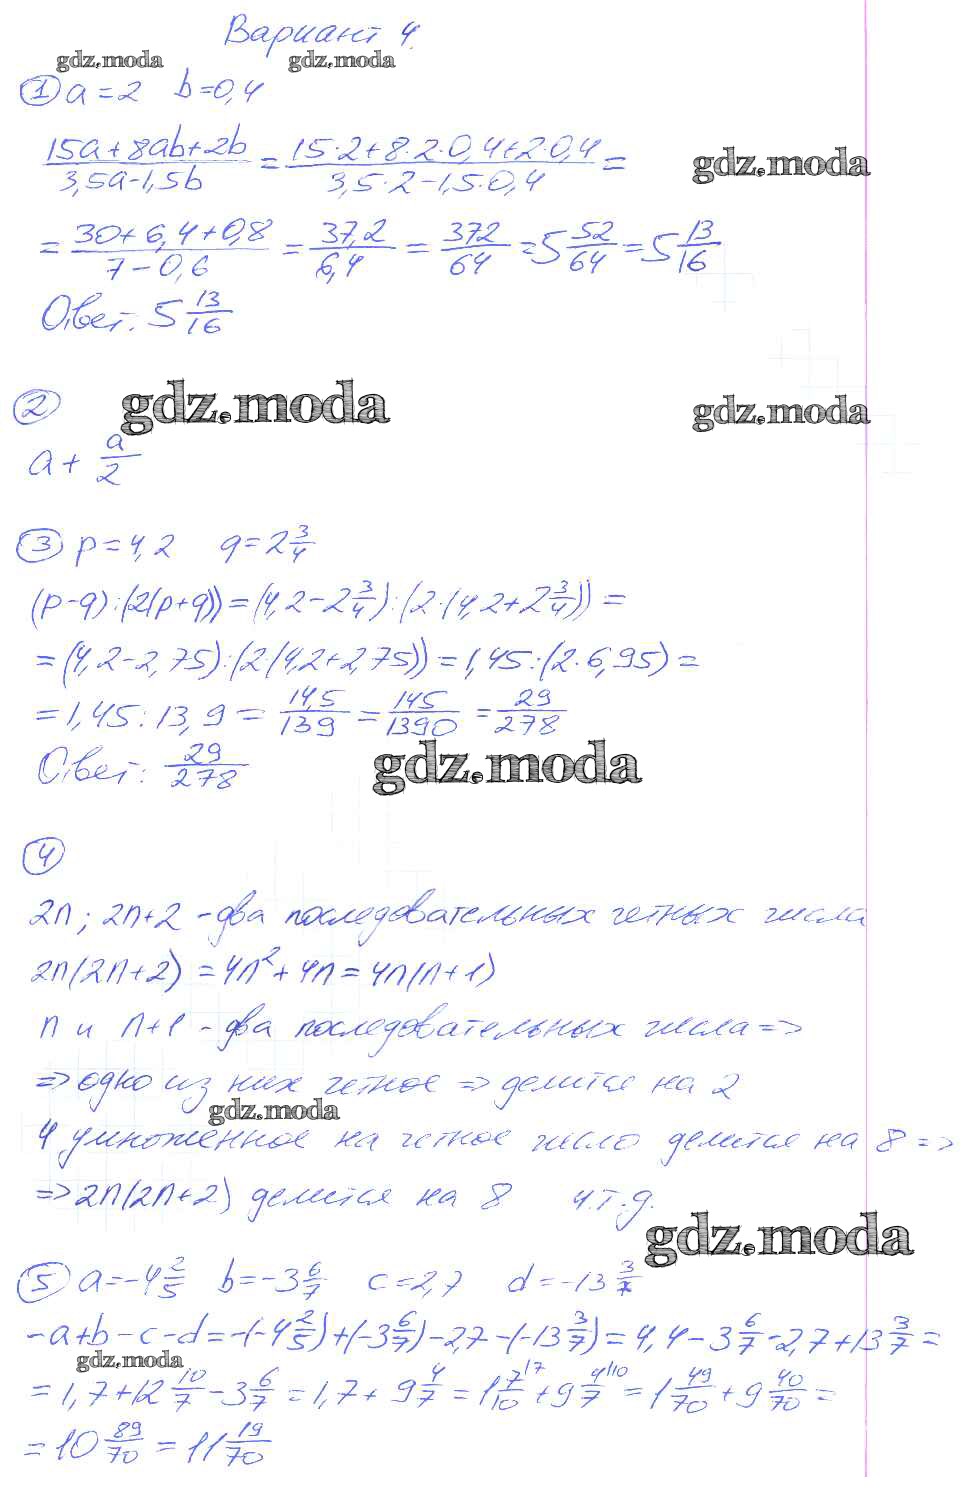 Вариант 4.
gdz.moda gdz.moda
① a = 2 b = 0,4
(15a + 8ab + 2b)/(3,5a - 1,5b) = (15·2 + 8·2·0,4 + 2·0,4)/(3,5·2 - 1,5·0,4) =
gdz.moda
= (30 + 6,4 + 0,8)/(7 - 0,6) = 37,2/6,4 = 372/64 = 5 52/64 = 5 13/16
Ответ: 5 13/16
②
gdz.moda gdz.moda
a + a/2
③ p = 4,2 q = 2 3/4
(p-q):(2(p+q)) = (4,2 - 2 3/4):(2·(4,2 + 2 3/4)) =
= (4,2 - 2,75):(2(4,2 + 2,75)) = 1,45:(2·6,95) =
= 1,45:13,9 = 14,5/139 = 145/1390 = 29/278
Ответ: 29/278
gdz.moda
④
2n; 2n+2 - два последовательных четных числа
2n(2n+2) = 4n² + 4n = 4n(n+1)
n и n+1 - два последовательных числа =>
=> одно из них четное => делится на 2
gdz.moda
4 умноженное на четное число делится на 8 =>
=> 2n(2n+2) делится на 8 ч.т.д.
gdz.moda
⑤ a = -4 2/5 b = -3 6/7 c = 2,7 d = -13 3/7
-a+b-c-d = -(-4 2/5) + (-3 6/7) - 2,7 - (-13 3/7) = 4,4 - 3 6/7 - 2,7 + 13 3/7 =
gdz.moda
= 1,7 + 12 10/7 - 3 6/7 = 1,7 + 9 4/7 = 1 7/10 \7 + 9 4/7 \10 = 1 49/70 + 9 40/70 =
= 10 89/70 = 11 19/70